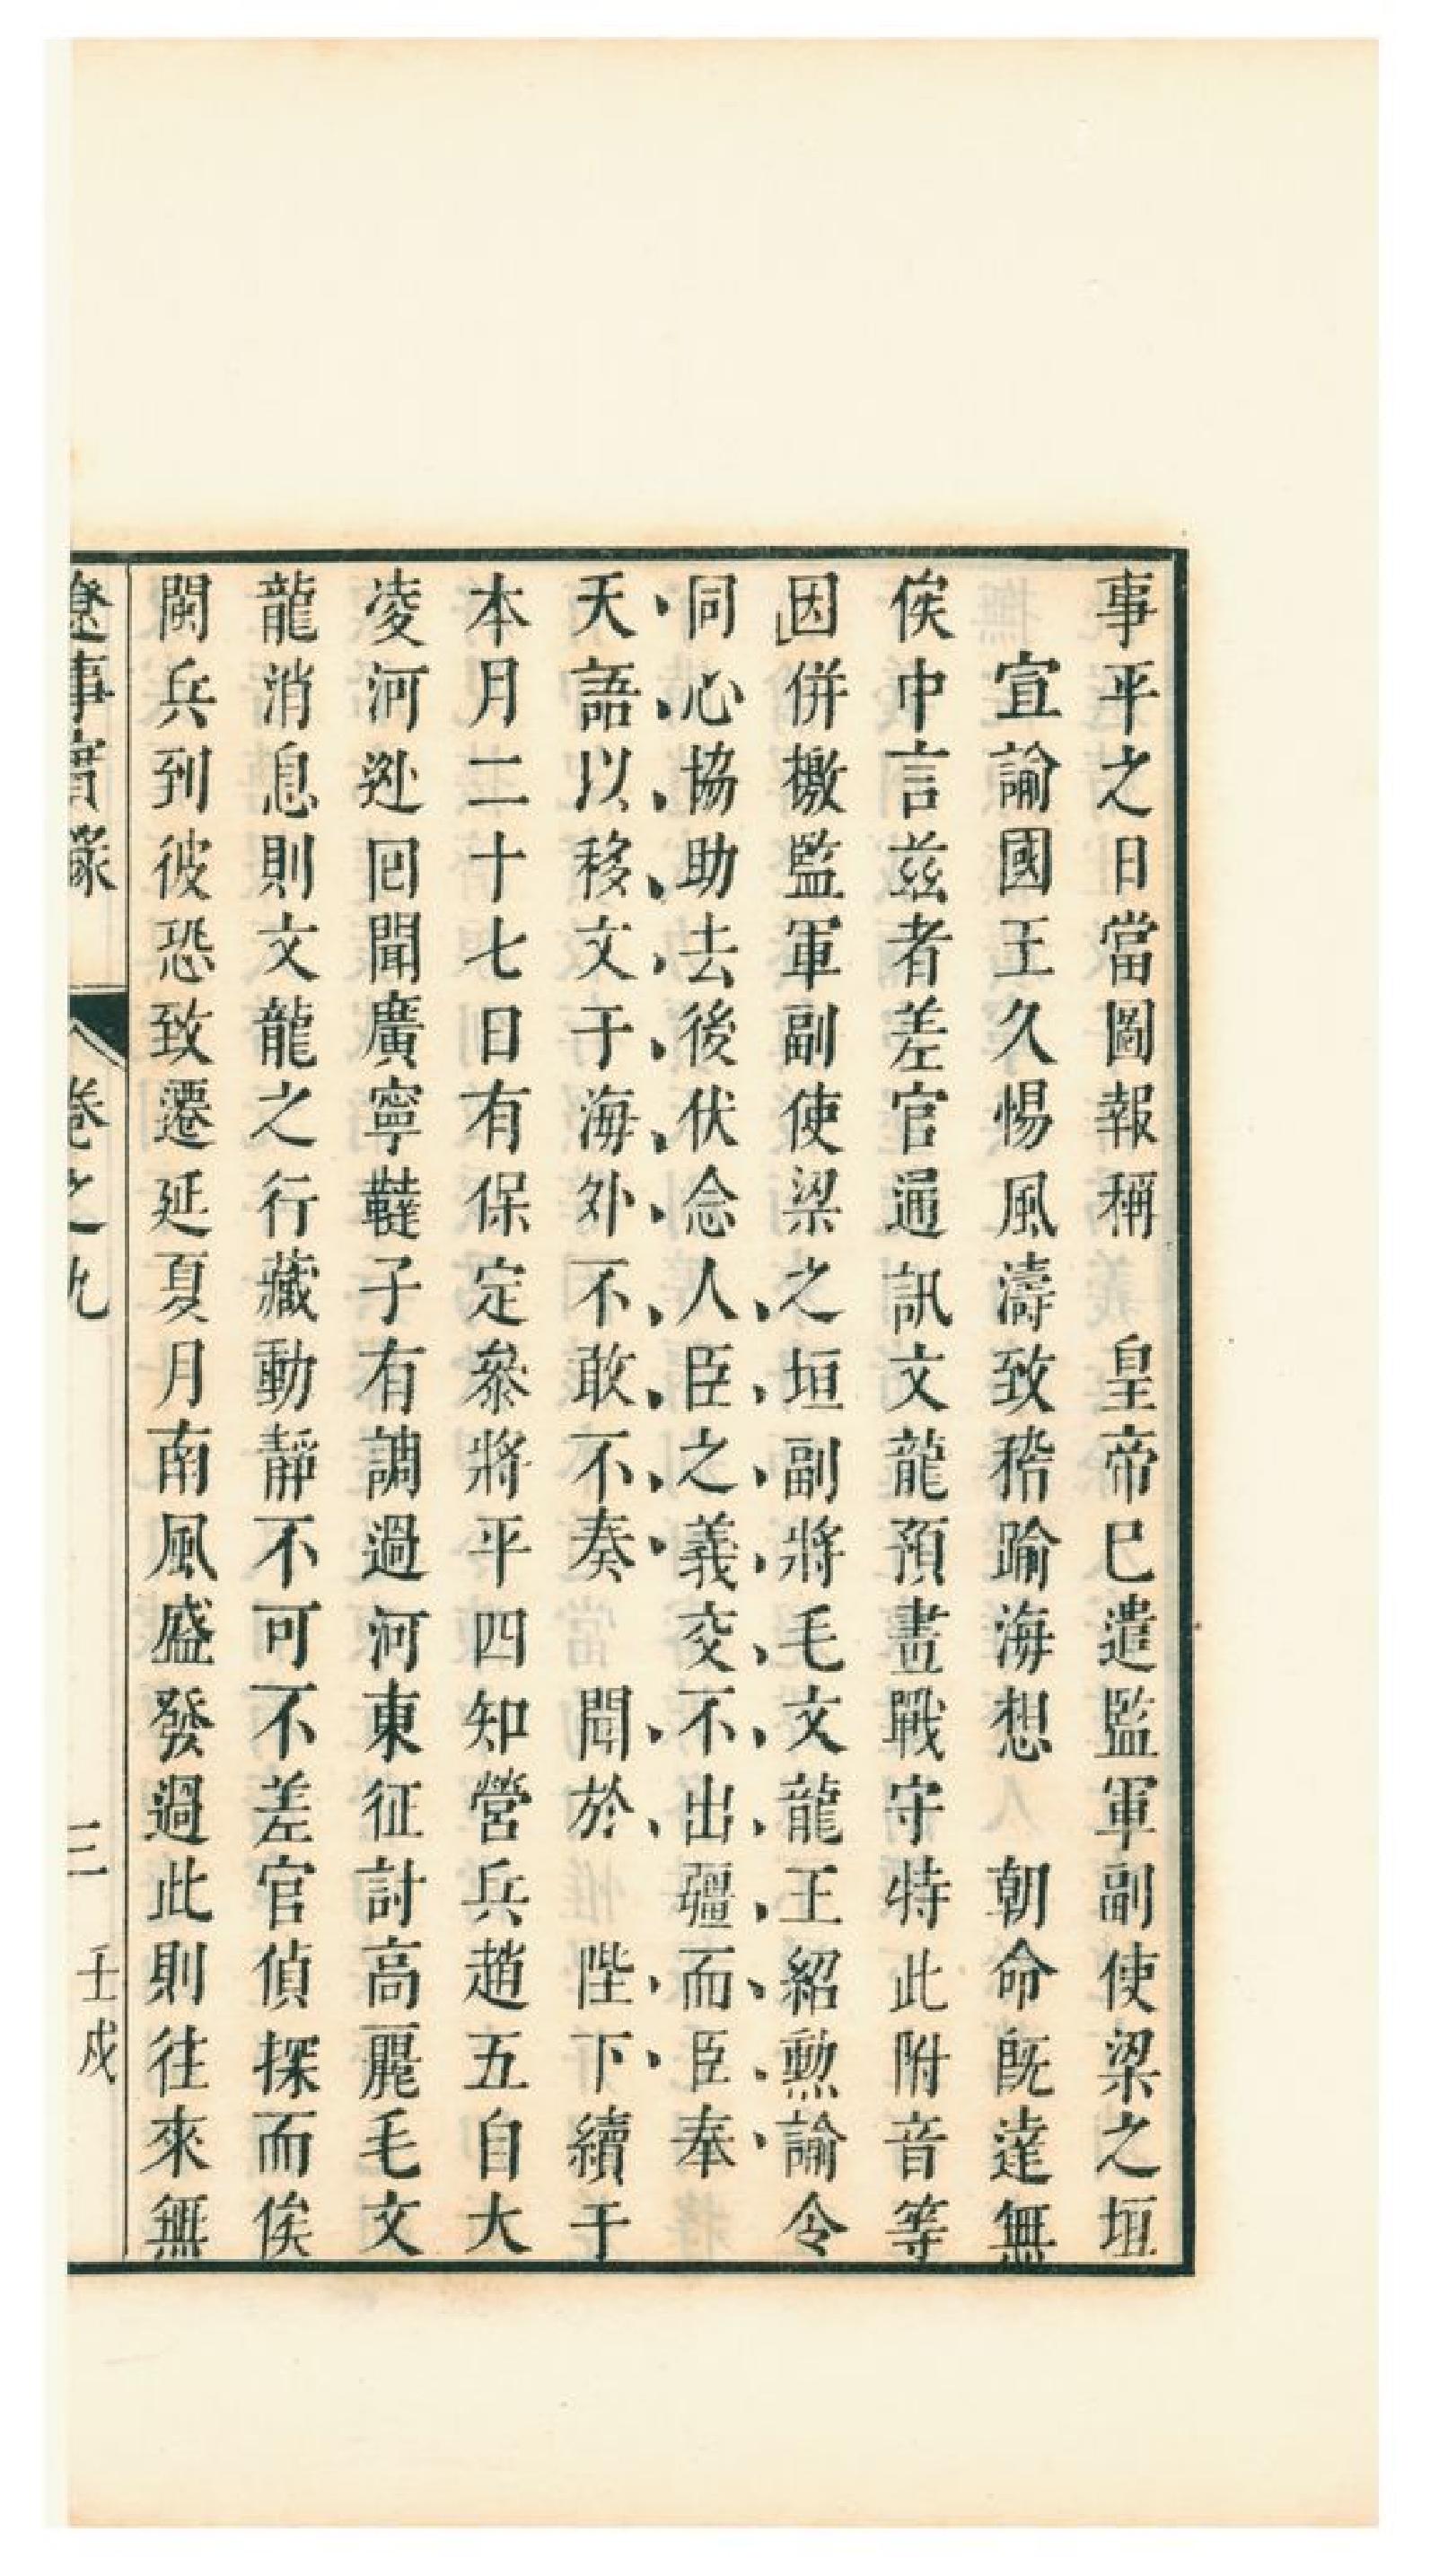 事平之日當圖報稱　皇帝巳遣監軍副使梁之垣
宣諭國王久惕風濤致稽踰海想　朝命旣達無
俟中言茲者差官通訊文龍預畫戰守特此附音等
因併檄監軍副使梁之垣副將毛文龍王紹勲諭令
同心協助去後伏念人臣之義交不出疆而臣奉
天語以移文于海外不敢不奏　聞於　陛下續于
本月二十七日有保定叅將平四知營兵趙五自大
凌河迯回聞廣寧韃子有調過河東征討高麗毛文
龍消息則文龍之行藏動靜不可不差官偵探而俟
閱兵到彼恐致遷延夏月南風盛發過此則往來無
遼事實錄　卷之九　三　壬戌